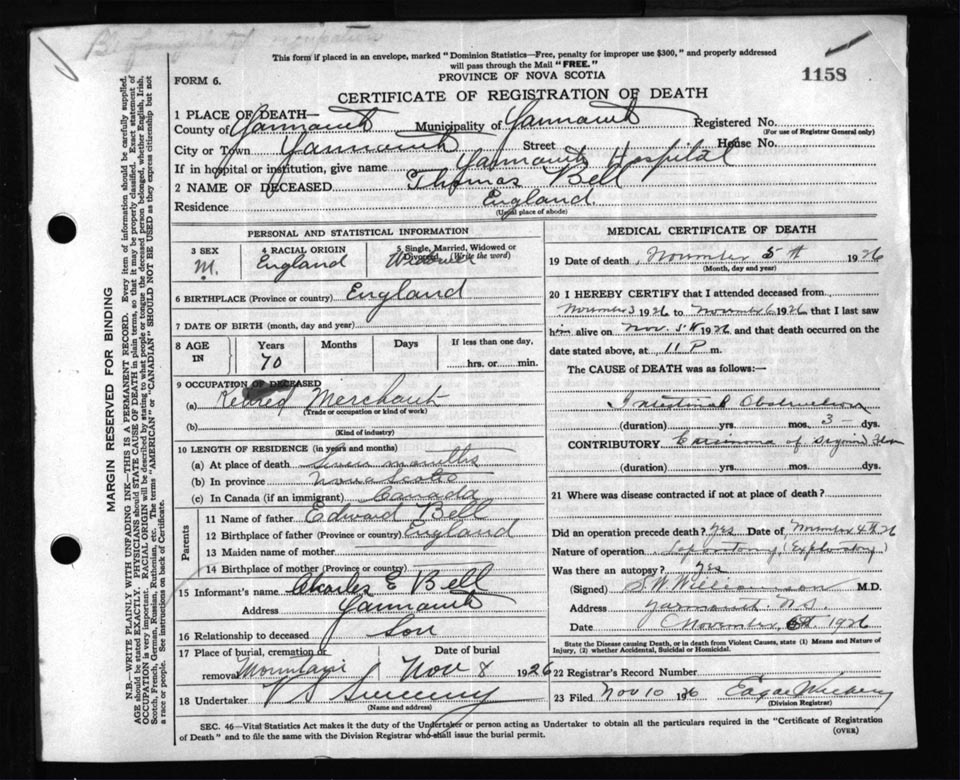 This form if placed in an envelope, marked "Dominion Statistics—Free, penalty for improper use $300," and properly addressed
will pass through the Mail "FREE."
FORM 6.
PROVINCE OF NOVA SCOTIA
1158
CERTIFICATE OF REGISTRATION OF DEATH
1 PLACE OF DEATH—
County of Yarmouth Municipality of Yarmouth Registered No.
(For use of Registrar General only)
City or Town Yarmouth Street House No.
If in hospital or institution, give name Yarmouth Hospital
2 NAME OF DECEASED Thomas Bell
Residence England
(Usual place of abode)
PERSONAL AND STATISTICAL INFORMATION
3 SEX M. 4 RACIAL ORIGIN England 5 Single, Married, Widowed or Divorced (Write the word) Widower
6 BIRTHPLACE (Province or country) England
7 DATE OF BIRTH (month, day and year)
8 AGE IN Years 70 Months Days If less than one day, hrs. or min.
9 OCCUPATION OF DECEASED
(a) Retired Merchant
(Trade or occupation or kind of work)
(b)
(Kind of industry)
10 LENGTH OF RESIDENCE (in years and months)
(a) At place of death Seven months
(b) In province Nova Scotia
(c) In Canada (if an immigrant) Canada
Parents
11 Name of father Edward Bell
12 Birthplace of father (Province or country) England
13 Maiden name of mother
14 Birthplace of mother (Province or country)
15 Informant's name Charles E Bell
Address Yarmouth
16 Relationship to deceased Son
17 Place of burial, cremation or removal Mountain Date of burial Nov 8 1926
18 Undertaker V S Sweeny
(Name and address)
MEDICAL CERTIFICATE OF DEATH
19 Date of death, November 5th 1926
(Month, day and year)
20 I HEREBY CERTIFY that I attended deceased from
November 3 1926 to November 6 1926 that I last saw
him alive on Nov. 5th 1926 and that death occurred on the
date stated above, at 11 P m.
The CAUSE of DEATH was as follows:—
Intestinal Obstruction
(duration) yrs. mos. 3 dys.
CONTRIBUTORY Carcinoma of Sigmoid Flexure
(duration) yrs. mos. dys.
21 Where was disease contracted if not at place of death?
Did an operation precede death? Yes Date of November 4th 26
Nature of operation Laparotomy (Exploratory)
Was there an autopsy? Yes
(Signed) S W Williamson M.D.
Address Yarmouth N.S.
Date November 6th 1926
State the Disease causing Death, or in death from Violent Causes, state (1) Means and Nature of
Injury, (2) whether Accidental, Suicidal or Homicidal.
22 Registrar's Record Number
23 Filed Nov 10 1926 Edgar
(Division Registrar)
SEC. 46—Vital Statistics Act makes it the duty of the Undertaker or person acting as Undertaker to obtain all the particulars required in the "Certificate of Registration
of Death" and to file the same with the Division Registrar who shall issue the burial permit.
(OVER)
MARGIN RESERVED FOR BINDING
N.B.—WRITE PLAINLY WITH UNFADING INK—THIS IS A PERMANENT RECORD. Every item of information should be carefully supplied.
AGE should be stated EXACTLY. PHYSICIANS should STATE CAUSE OF DEATH in plain terms, so that it may be properly classified. Exact statement of
OCCUPATION is very important. RACIAL ORIGIN will be described by stating to what people or tongue the deceased person belonged, whether English, Irish,
Scotch, French, German, Russian, Ruthenian, etc. The terms "AMERICAN" or "CANADIAN" SHOULD NOT BE USED as they express citizenship but not
a race or people. See instructions on back of Certificate.